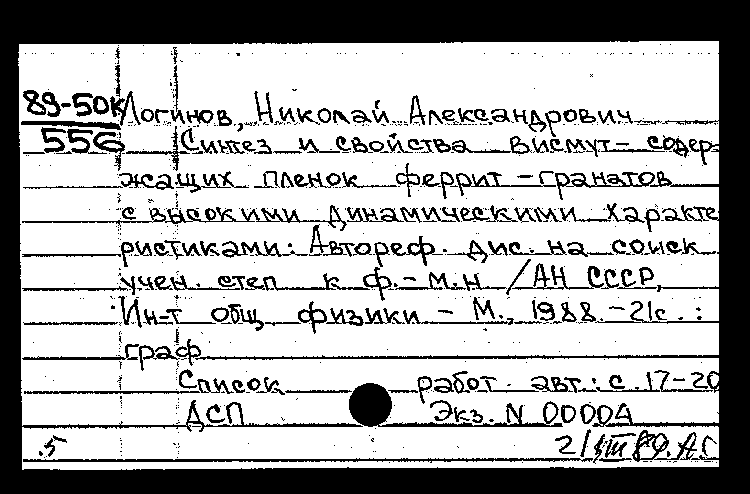 89-50К Логинов, Николай Александрович
556 Синтез и свойства висмут-содер-
жащих пленок феррит-гранатов
с высокими динамическими характе
ристиками: Автореф. дис. на соиск
учен. степ к ф.-м.н /АН СССР,
Ин-т общ физики - М., 1988.-21с. :
граф
Список работ. авт.: с. 17-20
ДСП Экз. N 0000А
.5 2/VIII 89. А.С